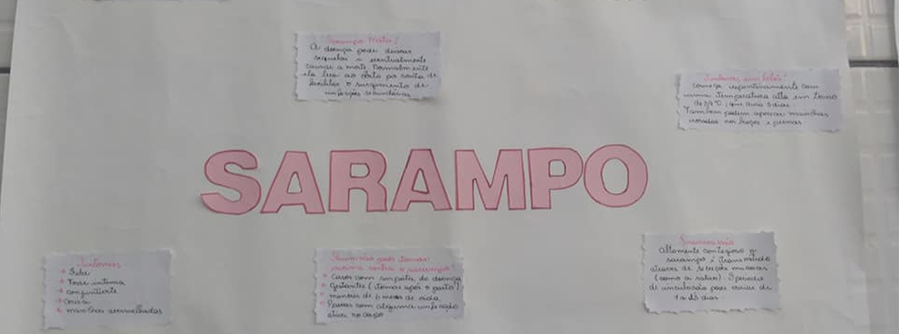 Sarampo Mata!
A doença pode deixar
sequelas e eventualmente
causar a morte. Normalmente
ela leva ao óbito por conta de
facilitar o surgimento de
infecções secundárias
Sintomas em bebês!
começa repentinamente com
uma temperatura alta em torno
de 39°C, com dura 3 dias
Também podem aparecer manchas
nos braços e pernas
SARAMPO
Sintomas
Febre
Tosse intensa
conjuntivite
coriza
manchas avermelhadas
Quem não pode tomar
vacina contra o sarampo?
Casos com suspeita da doença
Gestantes (tomar após o parto)
menores de 6 meses de vida
Pessoas com alguma infecção
ativa no corpo
Transmissão
Altamente contagioso, o
sarampo é transmitido
através de secreções mucosas
(como a saliva). O período
de incubação pode variar de
dias